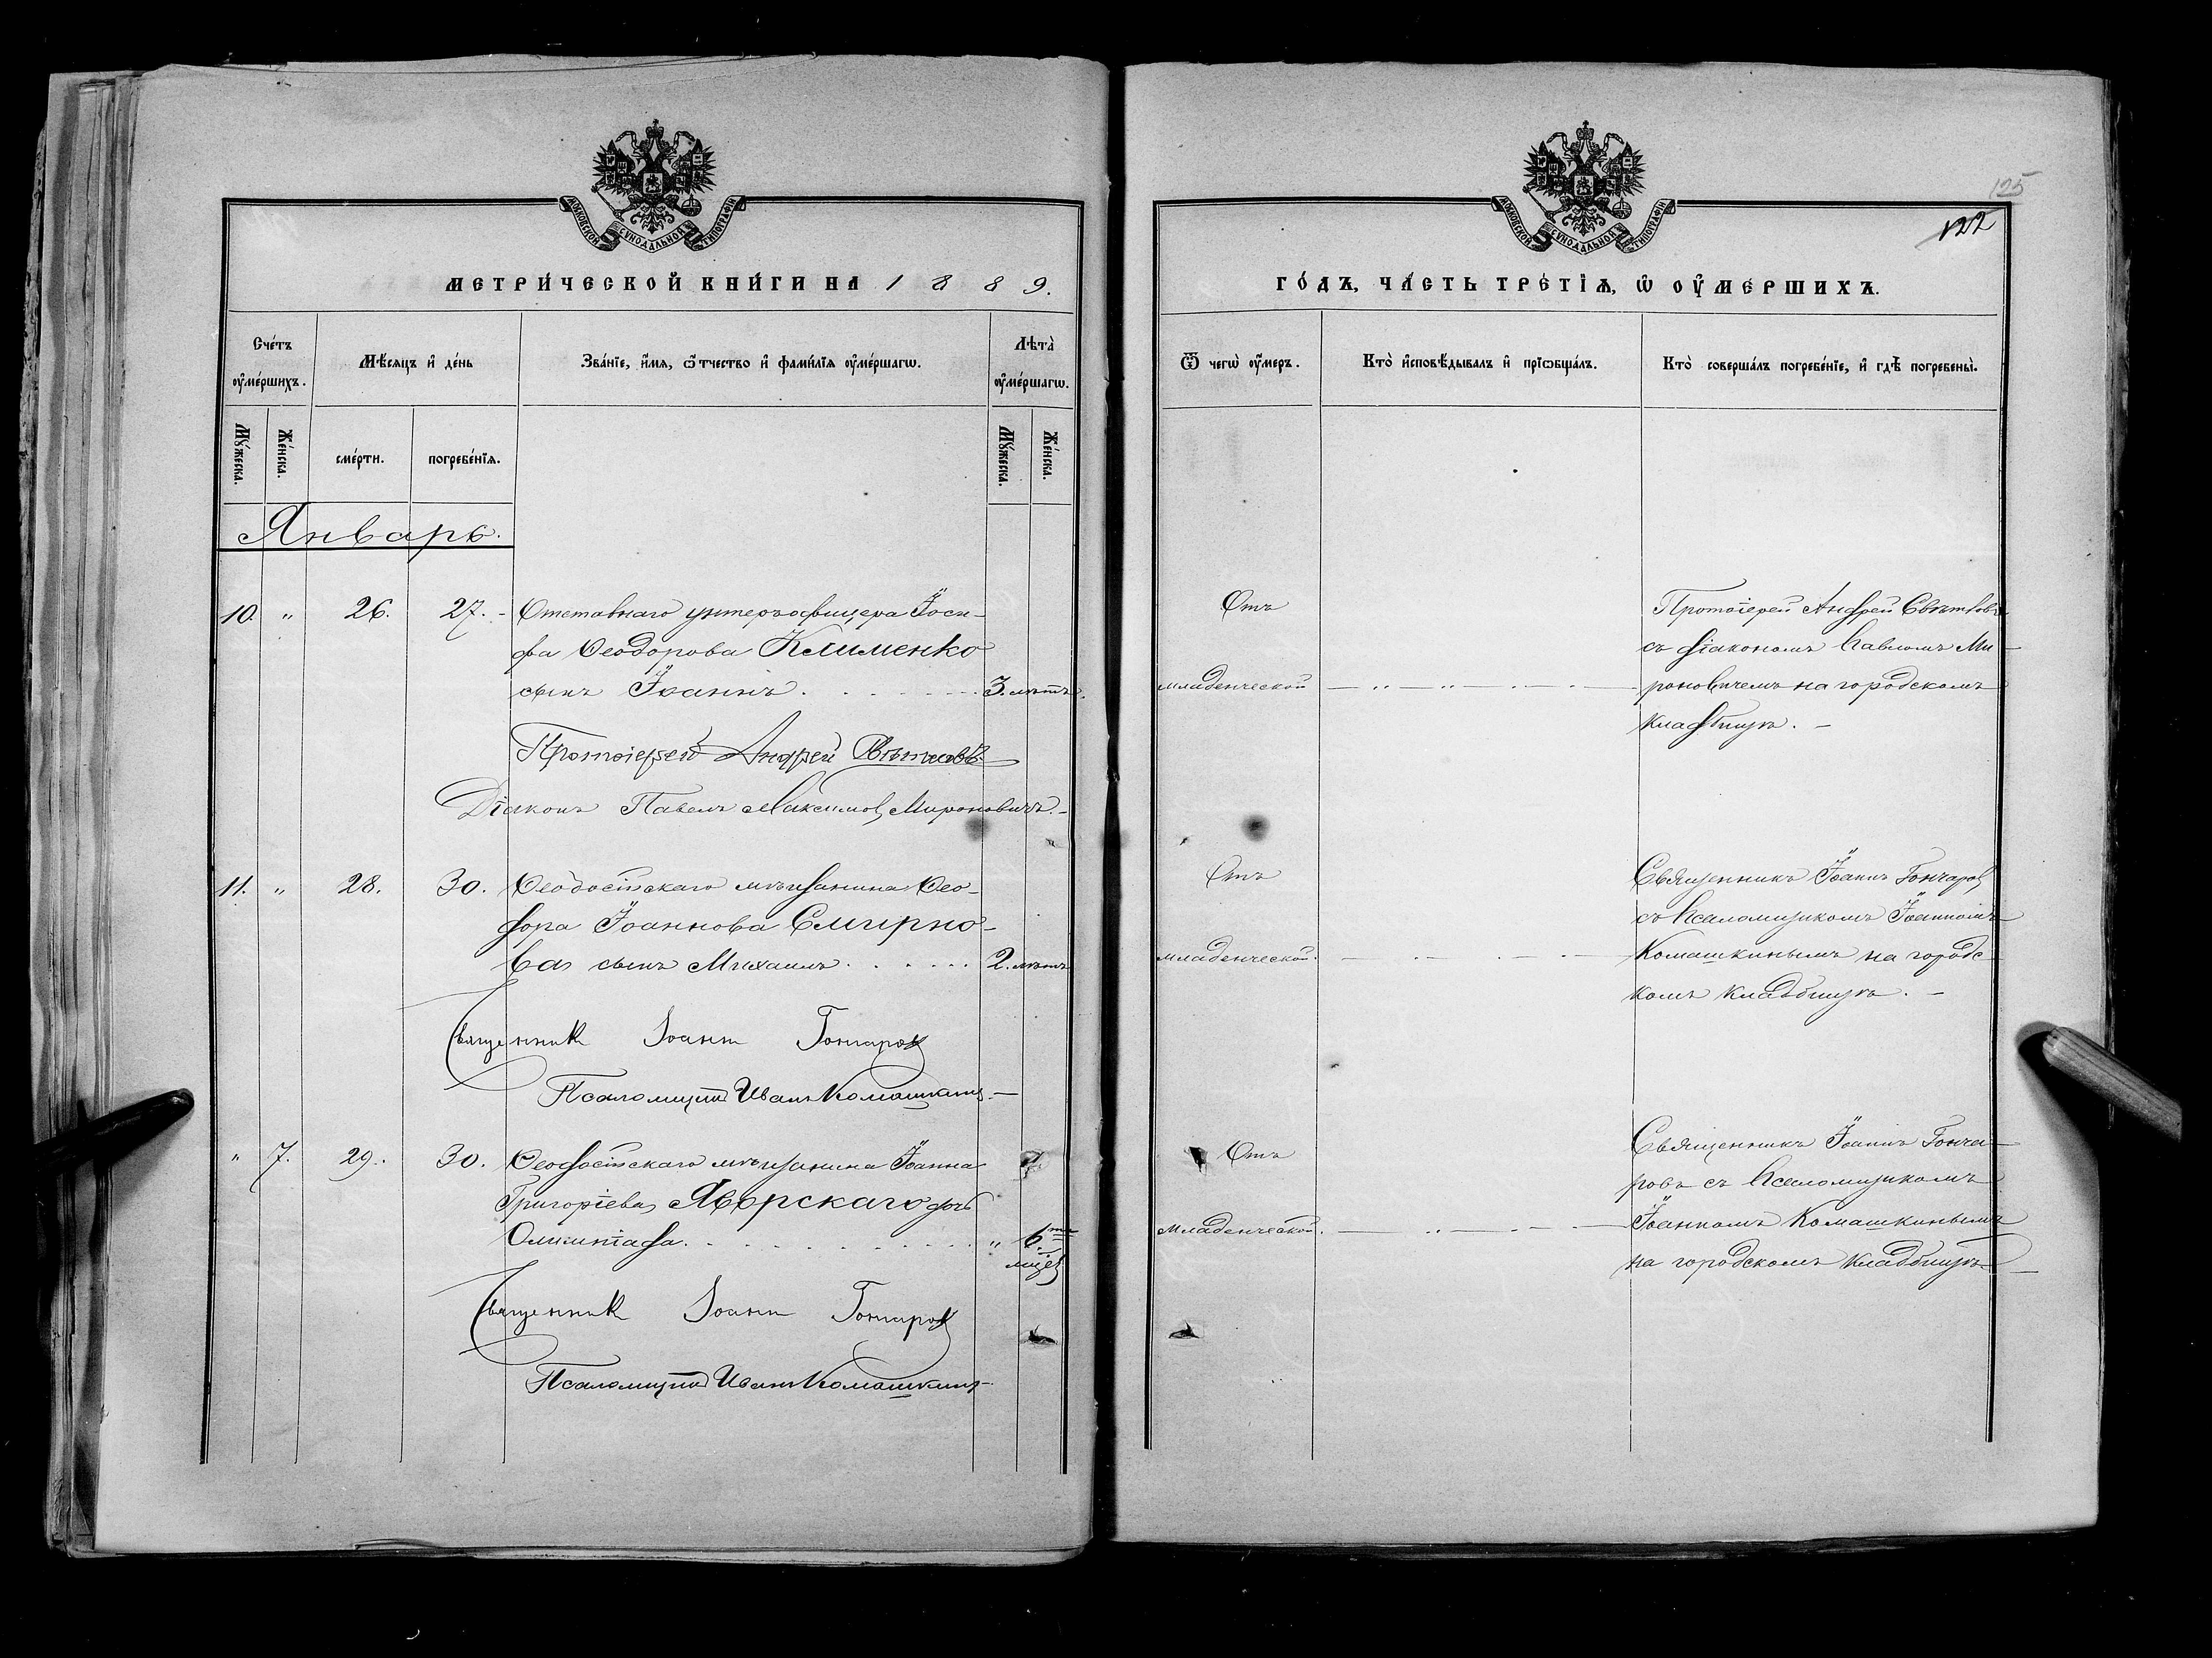 МОСКОВСКОЙ СУНОДАЛЬНОЙ ТИПОГРАФІИ
МЕТРИ́ЧЕСКОЙ КНИ́ГИ НА 1889.
Сче́тъ оу҆ме́ршихъ.
Мѣ́сяцъ и҆ де́нь
Зва́нїе, и҆́мѧ, ѻ҆́тчество и҆ фами́лїѧ оу҆ме́ршагѡ.
Лѣта̀ оу҆ме́ршагѡ.
Мꙋ́жеска.
Же́нска.
сме́рти.
погребе́нїѧ.
Мꙋ́жеска.
Же́нска.
Январь.
10. " 26. 27. Отставнаго унтеръ-офицера Іоси-
фа Ѳеодорова Клименко
сынъ Іоаннъ. 3. лѣтъ.
Протоіерей Андрей Свѣтловъ
Діаконъ Павелъ Максимов Мироновичъ.
11. " 28. 30. Ѳеодосійскаго мѣщанина Ѳео-
дора Іоаннова Смирно-
ва сынъ Михаилъ. 2. лѣтъ
Священник Іоанн Гончаров
Псаломщикъ Иванъ Комашкинъ.
" 7. 29. 30. Ѳеодосійскаго мѣщанина Іоанна
Григоріева Яворскаго дочь
Олимпіада. " 6ти
мцев
Священник Іоанн Гончаров
Псаломщикъ Иванъ Комашкинъ
125
122
МОСКОВСКОЙ СУНОДАЛЬНОЙ ТИПОГРАФІИ
ГО́ДЪ, ЧА́СТЬ ТРЕ́ТІѦ, Ѡ ОУ҆МЕ́РШИХЪ.
Ѿ чегѡ̀ оу҆́меръ.
Кто̀ и҆сповѣ́дывалъ и҆ прїѡбща́лъ.
Кто̀ соверша́лъ погребе́нїе, и҆ гдѣ̀ погребены̀.
Отъ
младенческой
Протоіерей Андрей Свѣтловъ
съ діакономъ Павломъ Ми-
роновичемъ на городскомъ
кладбищѣ.
Отъ
младенческой.
Священникъ Іоаннъ Гончаров
съ Псаломщикомъ Іоанномъ
Комашкинымъ на городс-
комъ кладбищѣ.
Отъ
младенческой.
Священникъ Іоаннъ Гонча-
ровъ съ Псаломщикомъ
Іоанномъ Комашкинымъ
на городскомъ кладбищѣ